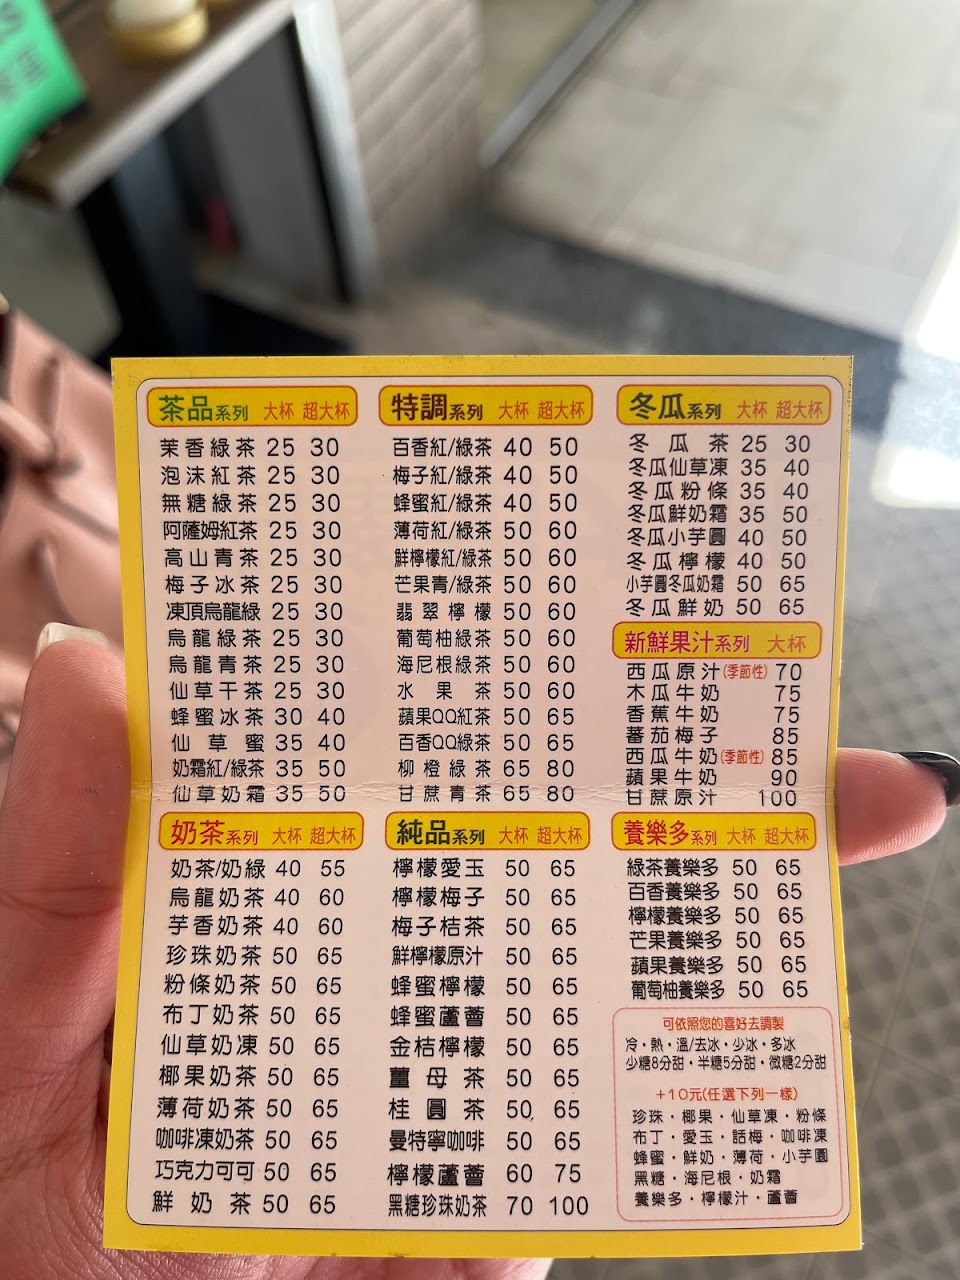 茶品系列 大杯 超大杯
茉香綠茶 25 30
泡沫紅茶 25 30
無糖綠茶 25 30
阿薩姆紅茶 25 30
高山青茶 25 30
梅子冰茶 25 30
凍頂烏龍綠 25 30
烏龍綠茶 25 30
烏龍青茶 25 30
仙草干茶 25 30
蜂蜜冰茶 30 40
仙草蜜 35 40
奶霜紅/綠茶 35 50
仙草奶霜 35 50
奶茶系列 大杯 超大杯
奶茶/奶綠 40 55
烏龍奶茶 40 60
芋香奶茶 40 60
珍珠奶茶 50 65
粉條奶茶 50 65
布丁奶茶 50 65
仙草奶凍 50 65
椰果奶茶 50 65
薄荷奶茶 50 65
咖啡凍奶茶 50 65
巧克力可可 50 65
鮮奶茶 50 65
特調系列 大杯 超大杯
百香紅/綠茶 40 50
梅子紅/綠茶 40 50
蜂蜜紅/綠茶 40 50
薄荷紅/綠茶 50 60
鮮檸檬紅/綠茶 50 60
芒果青/綠茶 50 60
翡翠檸檬 50 60
葡萄柚綠茶 50 60
海尼根綠茶 50 60
水果茶 50 60
蘋果QQ紅茶 50 65
百香QQ綠茶 50 65
柳橙綠茶 65 80
甘蔗青茶 65 80
純品系列 大杯 超大杯
檸檬愛玉 50 65
檸檬梅子 50 65
梅子桔茶 50 65
鮮檸檬原汁 50 65
蜂蜜檸檬 50 65
蜂蜜蘆薈 50 65
金桔檸檬 50 65
薑母茶 50 65
桂圓茶 50 65
曼特寧咖啡 50 65
檸檬蘆薈 60 75
黑糖珍珠奶茶 70 100
冬瓜系列 大杯 超大杯
冬瓜茶 25 30
冬瓜仙草凍 35 40
冬瓜粉條 35 40
冬瓜鮮奶霜 35 50
冬瓜小芋圓 40 50
冬瓜檸檬 40 50
小芋圓冬瓜奶霜 50 65
冬瓜鮮奶 50 65
新鮮果汁系列 大杯
西瓜原汁(季節性) 70
木瓜牛奶 75
香蕉牛奶 75
蕃茄梅子 85
西瓜牛奶(季節性) 85
蘋果牛奶 90
甘蔗原汁 100
養樂多系列 大杯 超大杯
綠茶養樂多 50 65
百香養樂多 50 65
檸檬養樂多 50 65
芒果養樂多 50 65
蘋果養樂多 50 65
葡萄柚養樂多 50 65
可依照您的喜好去調製
冷・熱・溫/去冰・少冰・多冰
少糖8分甜・半糖5分甜・微糖2分甜
+10元(任選下列一樣)
珍珠・椰果・仙草凍・粉條
布丁・愛玉・話梅・咖啡凍
蜂蜜・鮮奶・薄荷・小芋圓
黑糖・海尼根・奶霜
養樂多・檸檬汁・蘆薈